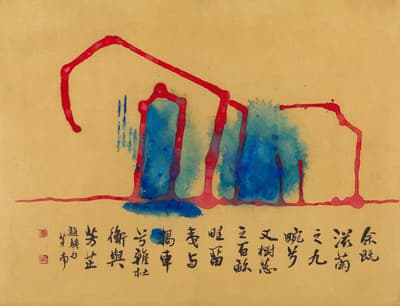 余既
滋蘭
之九
畹兮
又樹蕙
之百畝
畦留
夷与
揭車
兮雜杜
衡與
芳芷